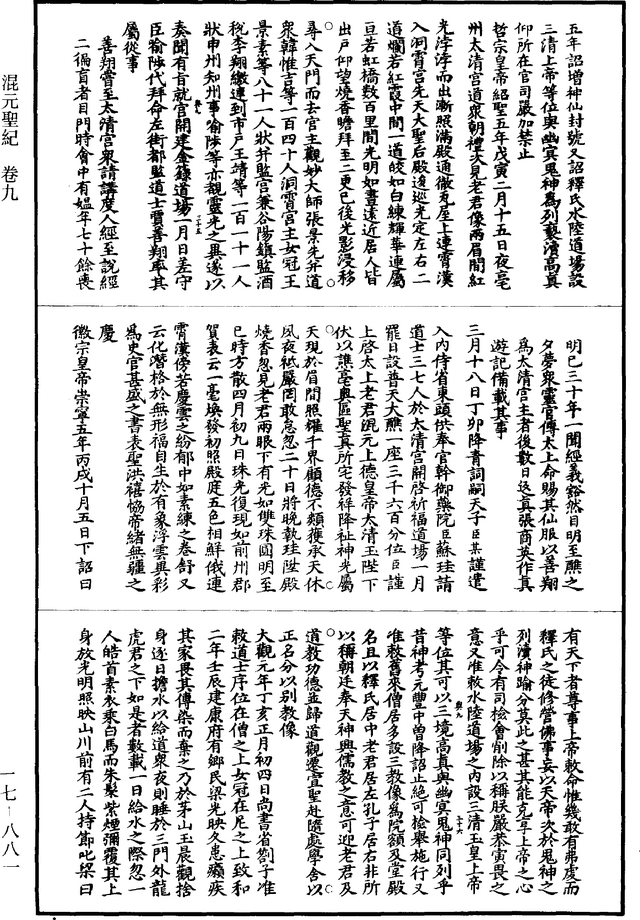 五年詔增神仙封號又詔釋氏水陸道場設
三清上帝等位與幽冥鬼神為列褻瀆高真
仰所在官司嚴加禁止
哲宗皇帝紹聖五年戊寅二月十五日夜亳
州太清宮道眾朝禮次見老君像兩眉間紅
光浡浡而出漸照滿殿通徹瓦屋上連霄漢
入洞霄宮先天大聖后殿後巡光定左右二
道爛若紅霞中間一道皎如白練輝華連屬
亘若虹橋數百里間光明如晝遠近居人皆
出戶仰望燒香瞻拜至二更已後光影浸移
尋入天門而去宮主觀妙大師張景先并道
眾韓惟吉等一百四十人洞霄宮主女冠王
景素等八十一人狀并監宮兼谷陽鎮監酒
稅李翔繳連到市戶王靖等一百一十一人
狀申州知州事喻陟等亦覩靈光之異遂以
奏聞有旨就宮開建金籙道場一月日差守
臣喻陟代拜命左街都監道士賈善翔率其
屬從事
善翔嘗至太清宮眾請講度人經至說經
二徧盲者目開時會中有媼年七十餘喪
明已三十年一聞經義豁然目明至醮之
夕夢眾靈官傳太上命賜其仙服以善翔
為太清宮主者後數日返真張商英作其
遊記備載其事
三月十八日丁卯降青詞嗣天子臣某謹遣
入內侍省東頭供奉官幹御藥院臣蘇珪請
道士三七人於太清宮開啓祈福道場一月
罷日設普天大醮一座三千六百分位臣謹
上啓太上老君混元上德皇帝太清玉陛下
伏以譙亳奧區聖真所宅發祥降祉神光屬
天現於眉間照耀千界顧德不類獲承天休
夙夜祗嚴罔敢怠忽二十日將晚執珪陞殿
燒香忽見老君兩眼下有光如雙珠圓明至
巳時方散四月初九日珠光復現如前州郡
賀表云一毫煥發初照殿庭五色相鮮俄連
霄漢傍若慶雲之紛郁中如素練之卷舒又
云化潛格於無形福自生於有象浮雲與彩
為史官甚盛之書表聖洪禧協帝緒無疆之
慶
徽宗皇帝崇寧五年丙戌十月五日下詔曰
有天下者尊事上帝敕命惟幾敢有弗虔而
釋氏之徒修營佛事妄以天帝次於鬼神之
列瀆神踰分莫此之甚其能克享上帝之心
乎可令有司檢會削除以稱朕嚴恭寅畏之
意又准敕水陸道場之內設三清玉皇上帝
等位其可以三境高真與幽冥鬼神同列乎
昔神考元豐中曾降詔止絕可檢舉施行又
准敕舊來僧居多設三教像為院額及堂殿
名且以釋氏居中老君居左孔子居右非所
以稱朝廷奉天神興儒教之意可迎老君及
道教功德並歸道觀遷宣聖赴隨處學舍以
正名分以別教像
大觀元年丁亥正月初四日尚書省劄子准
敕道士序位在僧之上女冠在尼之上致和
二年壬辰建康府有鄉民梁光映久患癩疾
其家畏其傳染而棄之乃於茅山玉晨觀捨
身逐日擔水以給道眾夜則睡於三門外龍
虎君之下如是者數載一日給水之際忽一
人皓首素衣乘白馬而朱鬃紫煙彌覆其上
身放光明照映山川前有二人持節叱梁曰
混元聖紀 卷九
一七-八八一